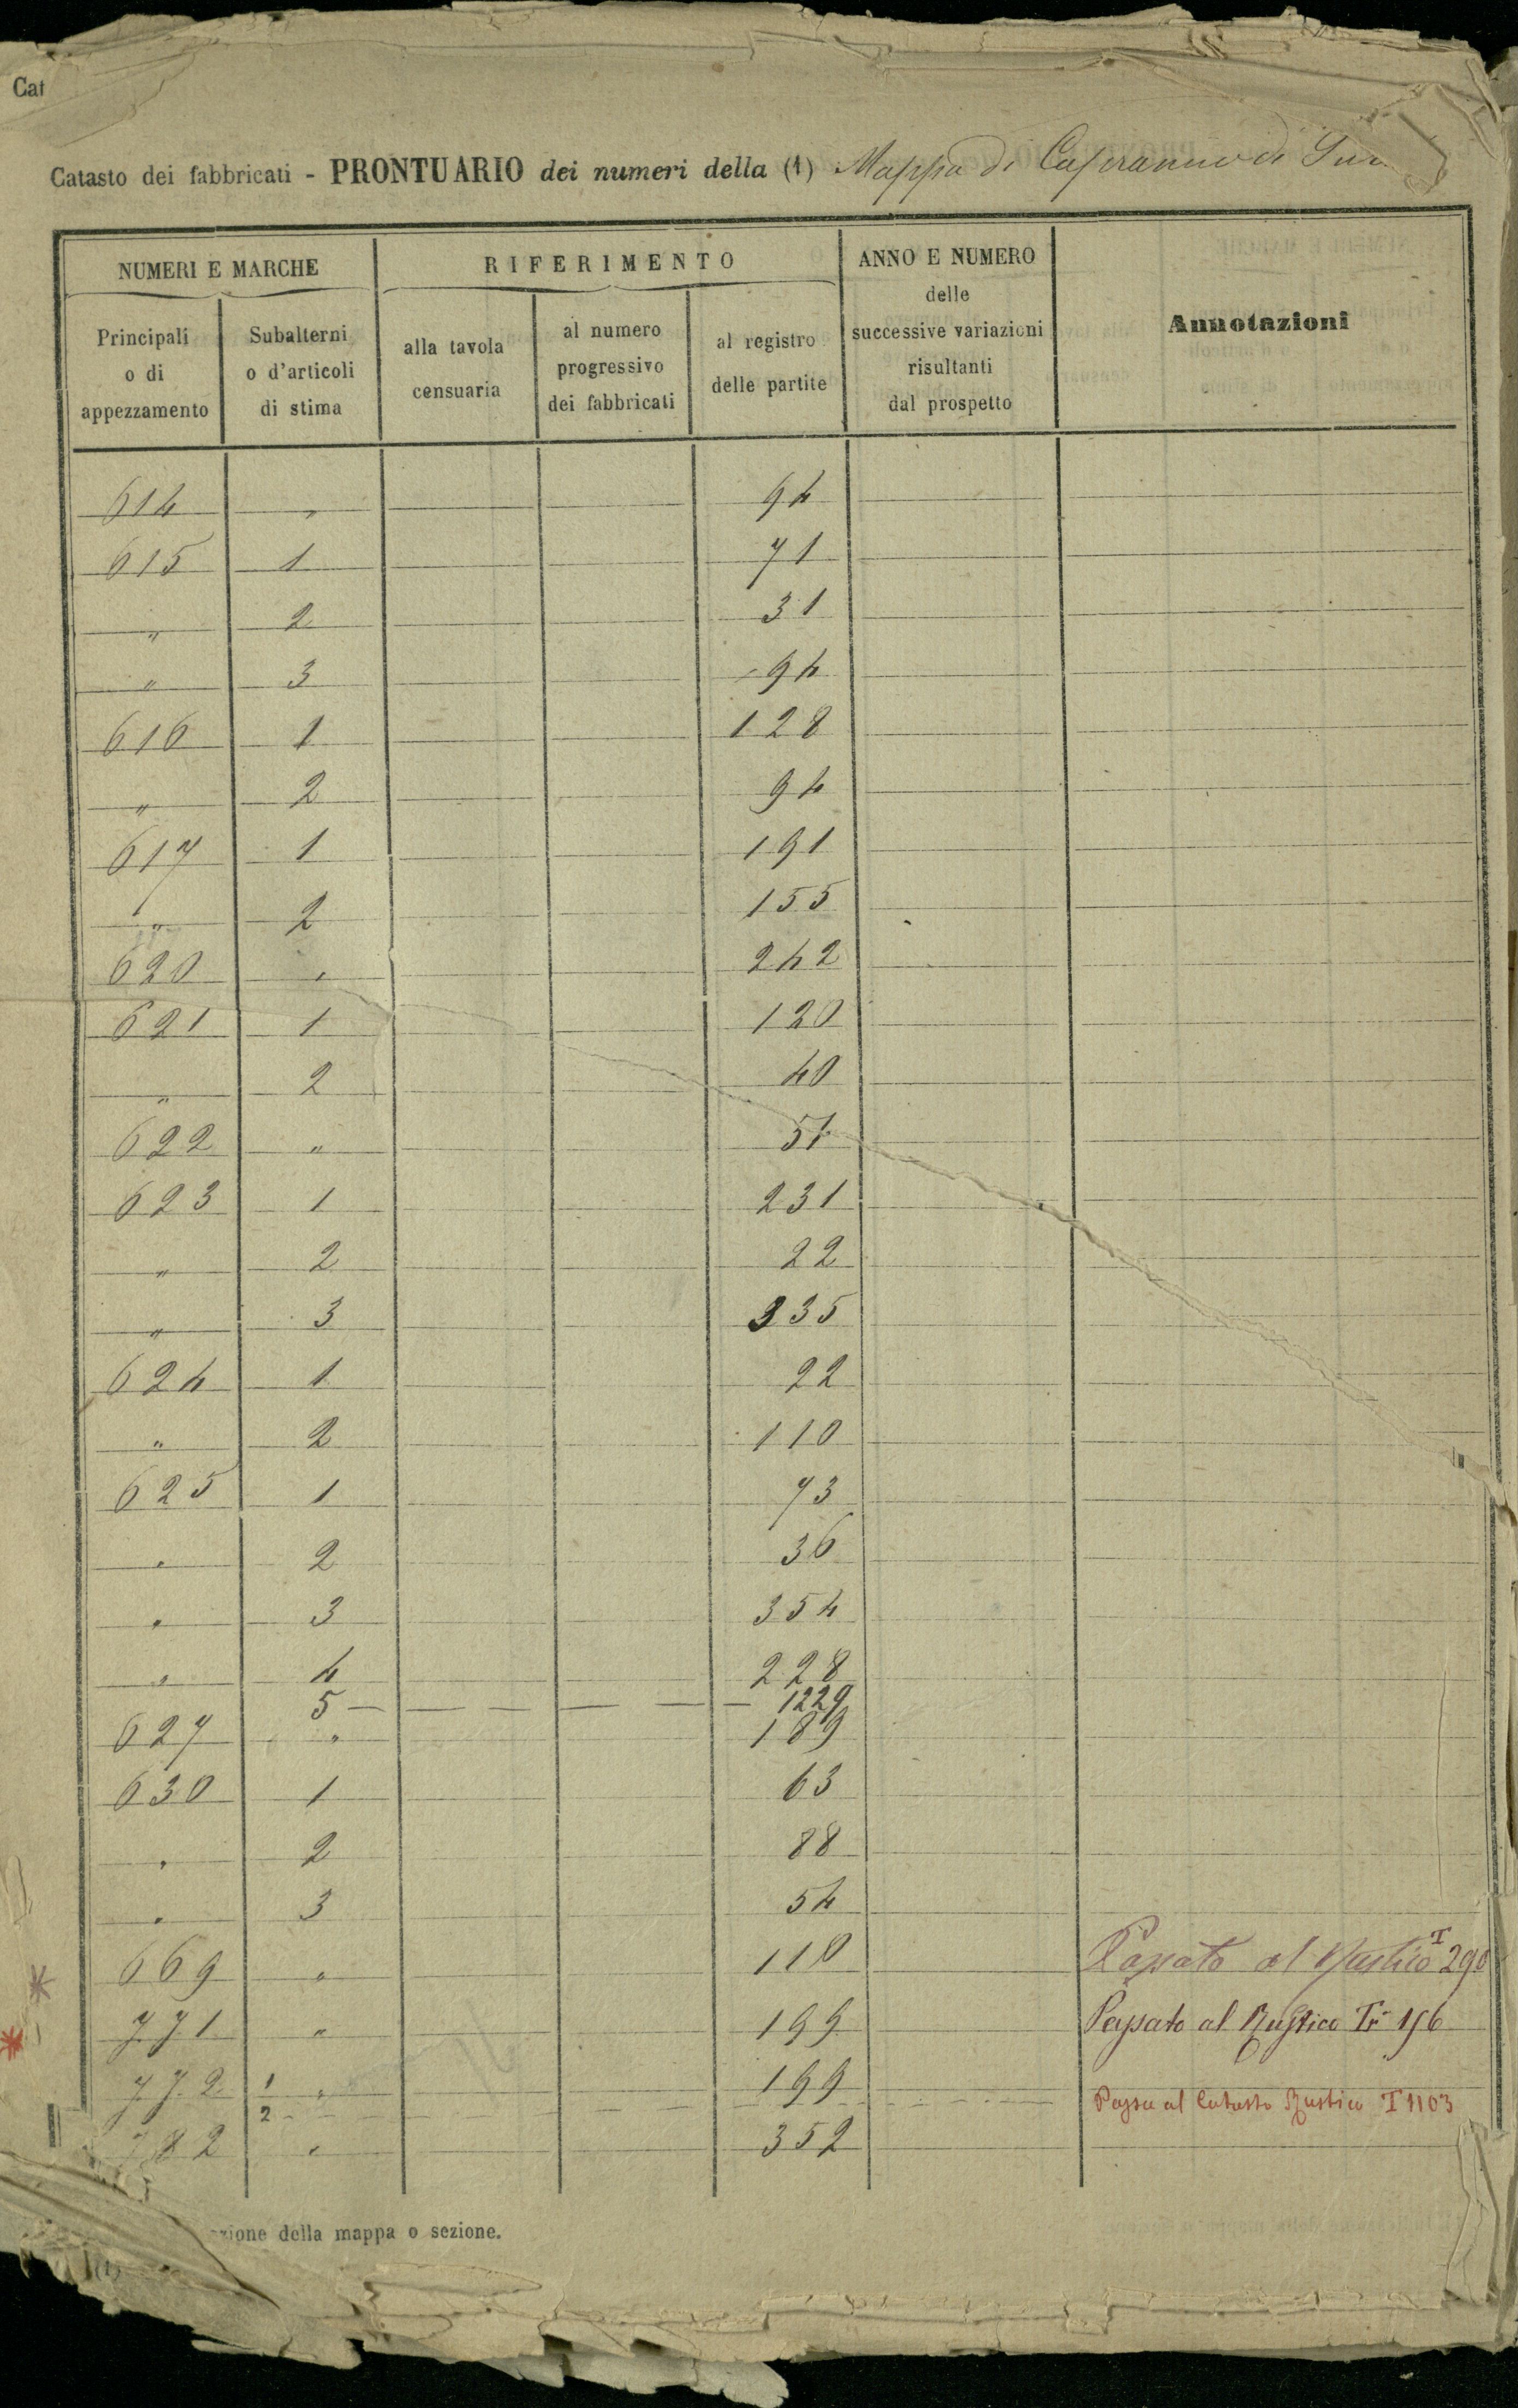 Cat
Catasto dei fabbricati - PRONTUARIO dei numeri della (1) Mappa di
NUMERI E MARCHE RIFERIMENTO ANNO E NUMERO delle successive variazioni risultanti dal prospetto Annotazioni
Principali o di appezzamento Subalterni o d'articoli di stima alla tavola censuaria al numero progressivo dei fabbricati al registro delle partite
614 " 94
615 1 71
" 2 31
" 3 94
616 1 128
" 2 94
617 1 191
" 2 155
620 " 242
621 1 120
" 2 40
622 " 51
623 1 231
" 2 22
" 3 335
624 1 22
" 2 110
625 1 73
" 2 36
" 3 354
" 4 228
5 — — — — 1229
627 " 189
630 1 63
" 2 88
" 3 54
669 " 110 Passato al Rustico T 290
771 " 199 Passato al Rustico
772 1 " 199
2 Passa al Catasto Rustico T 1103
782 " 352
zione della mappa o sezione.
(1)